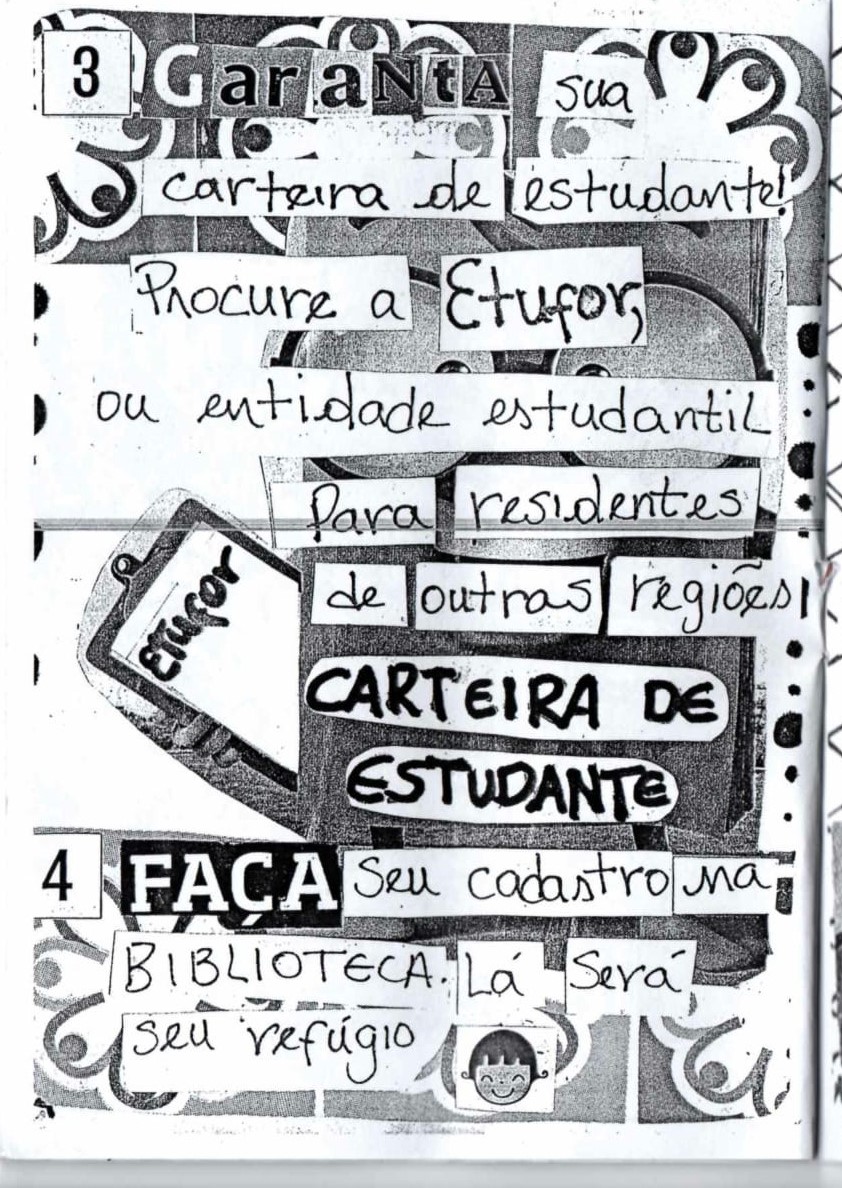 3 GaraNtA sua
carteira de estudante!
Procure a Etufor,
ou entidade estudantil
Para residentes
de outras regiões!
Etufor
CARTEIRA DE
ESTUDANTE
4 FAÇA seu cadastro na
BIBLIOTECA. Lá Será
seu refúgio